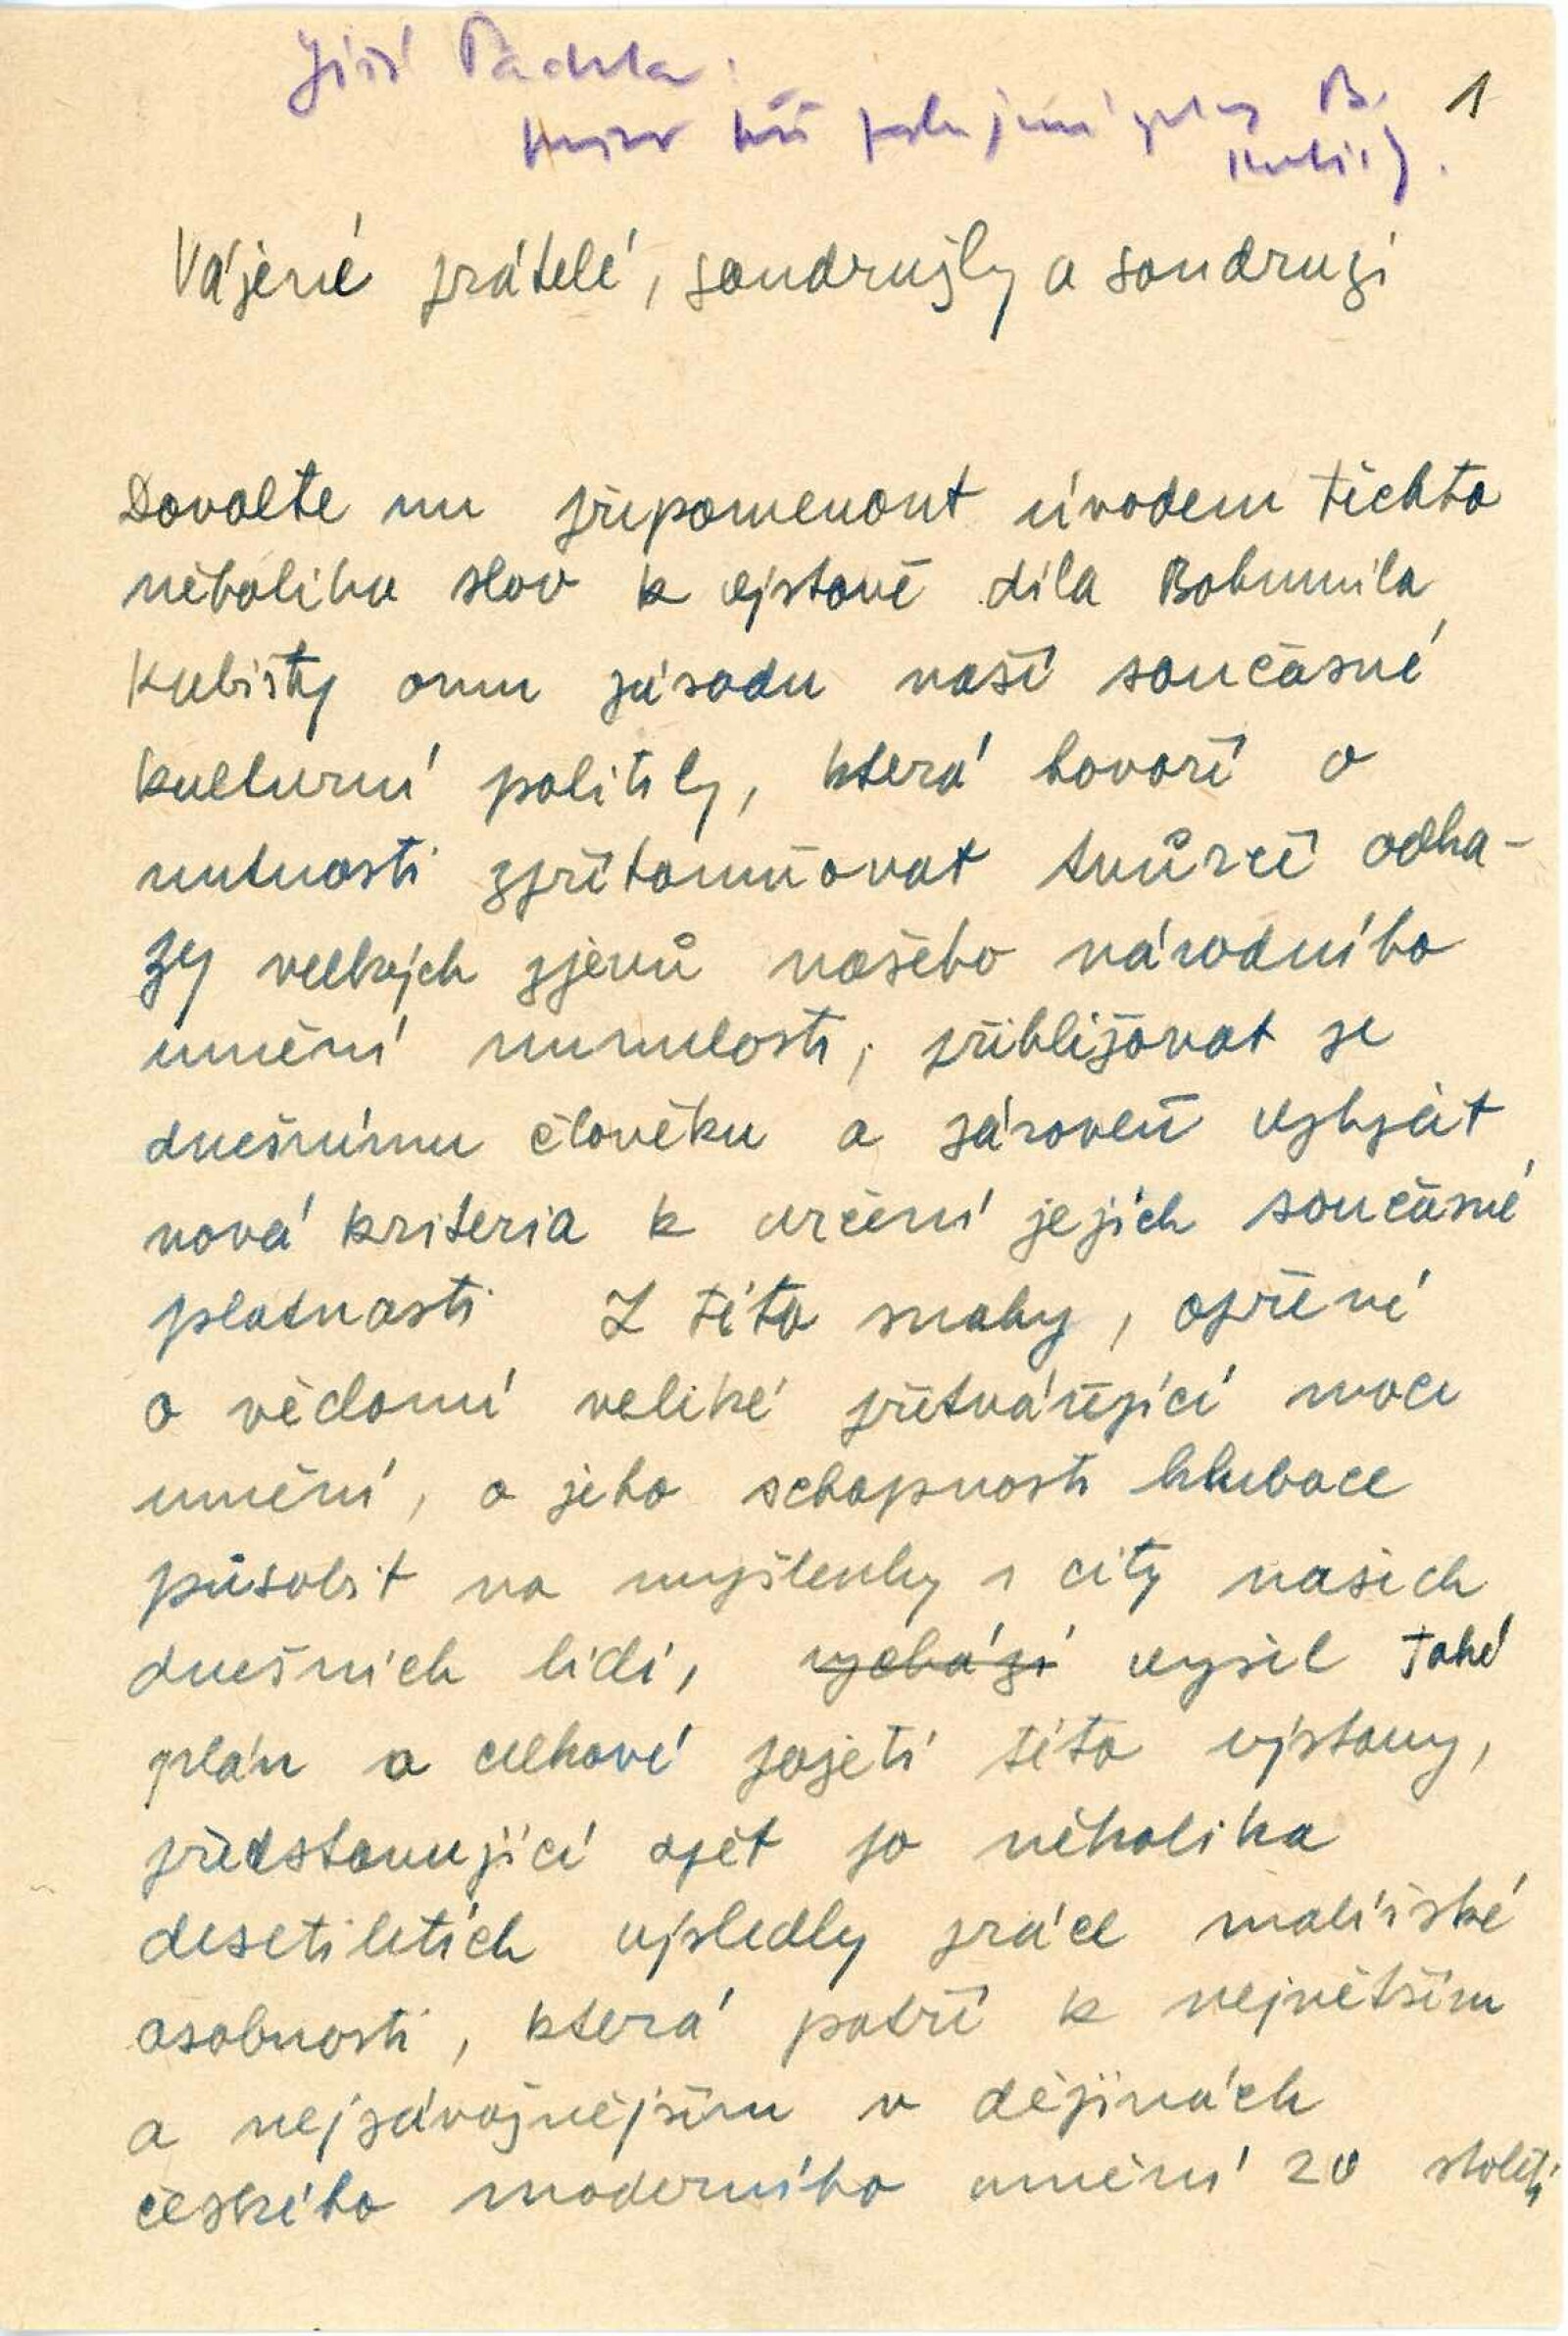 Jiří Padrta:
B. 1
Kubišty.
Vážené přátelé, soudružky a soudruzi
Dovolte mi připomenout úvodem těchto
několika slov k výstavě díla Bohumila
Kubišty onu zásadu naší současné
kulturní politiky, která hovoří o
nutnosti zpřítomňovat tvůrčí odka-
zy velkých zjevů našeho národního
umění minulosti, přibližovat je
dnešnímu člověku a zároveň vytyčit
nová kriteria k určení jejich současné
platnosti Z této snahy, opřené
o vědomí veliké přetvářející moci
umění, o jeho schopnosti hluboce
působit na myšlenky i city našich
dnešních lidí, vychází vyšel také
plán a celkové pojetí této výstavy,
představující opět po několika
desetiletích výsledky práce malířské
osobnosti, která patří k největším
a nejzávažnějším v dějinách
českého moderního umění 20 století